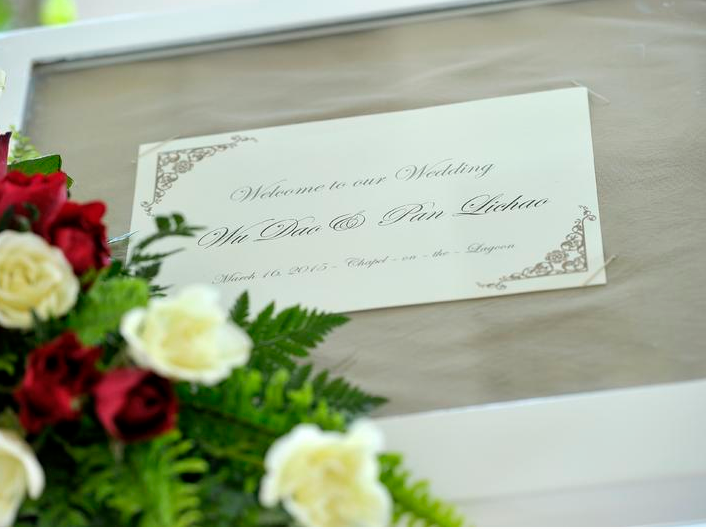 Welcome to our Wedding
Wu Dao & Pan Lichao
March 16, 2015 - Chapel - on - the - Lagoon